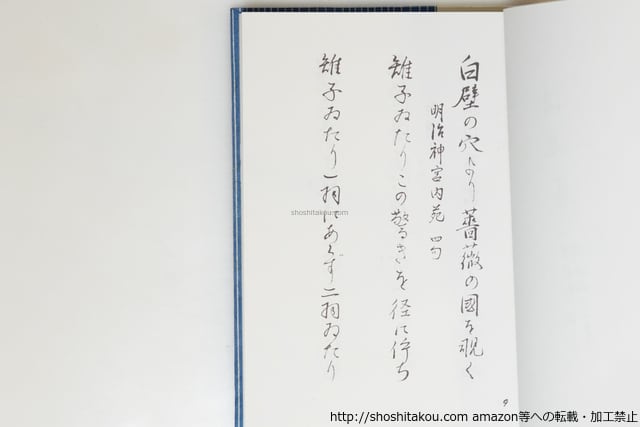 白壁の穴より薔薇の國を覗く
明治神宮内苑 四句
雉子ゐたりこの驚きを径に佇ち
雉子ゐたり一羽にあらず二羽ゐたり
9
shoshitakou.com
http://shoshitakou.com amazon等への転載・加工禁止